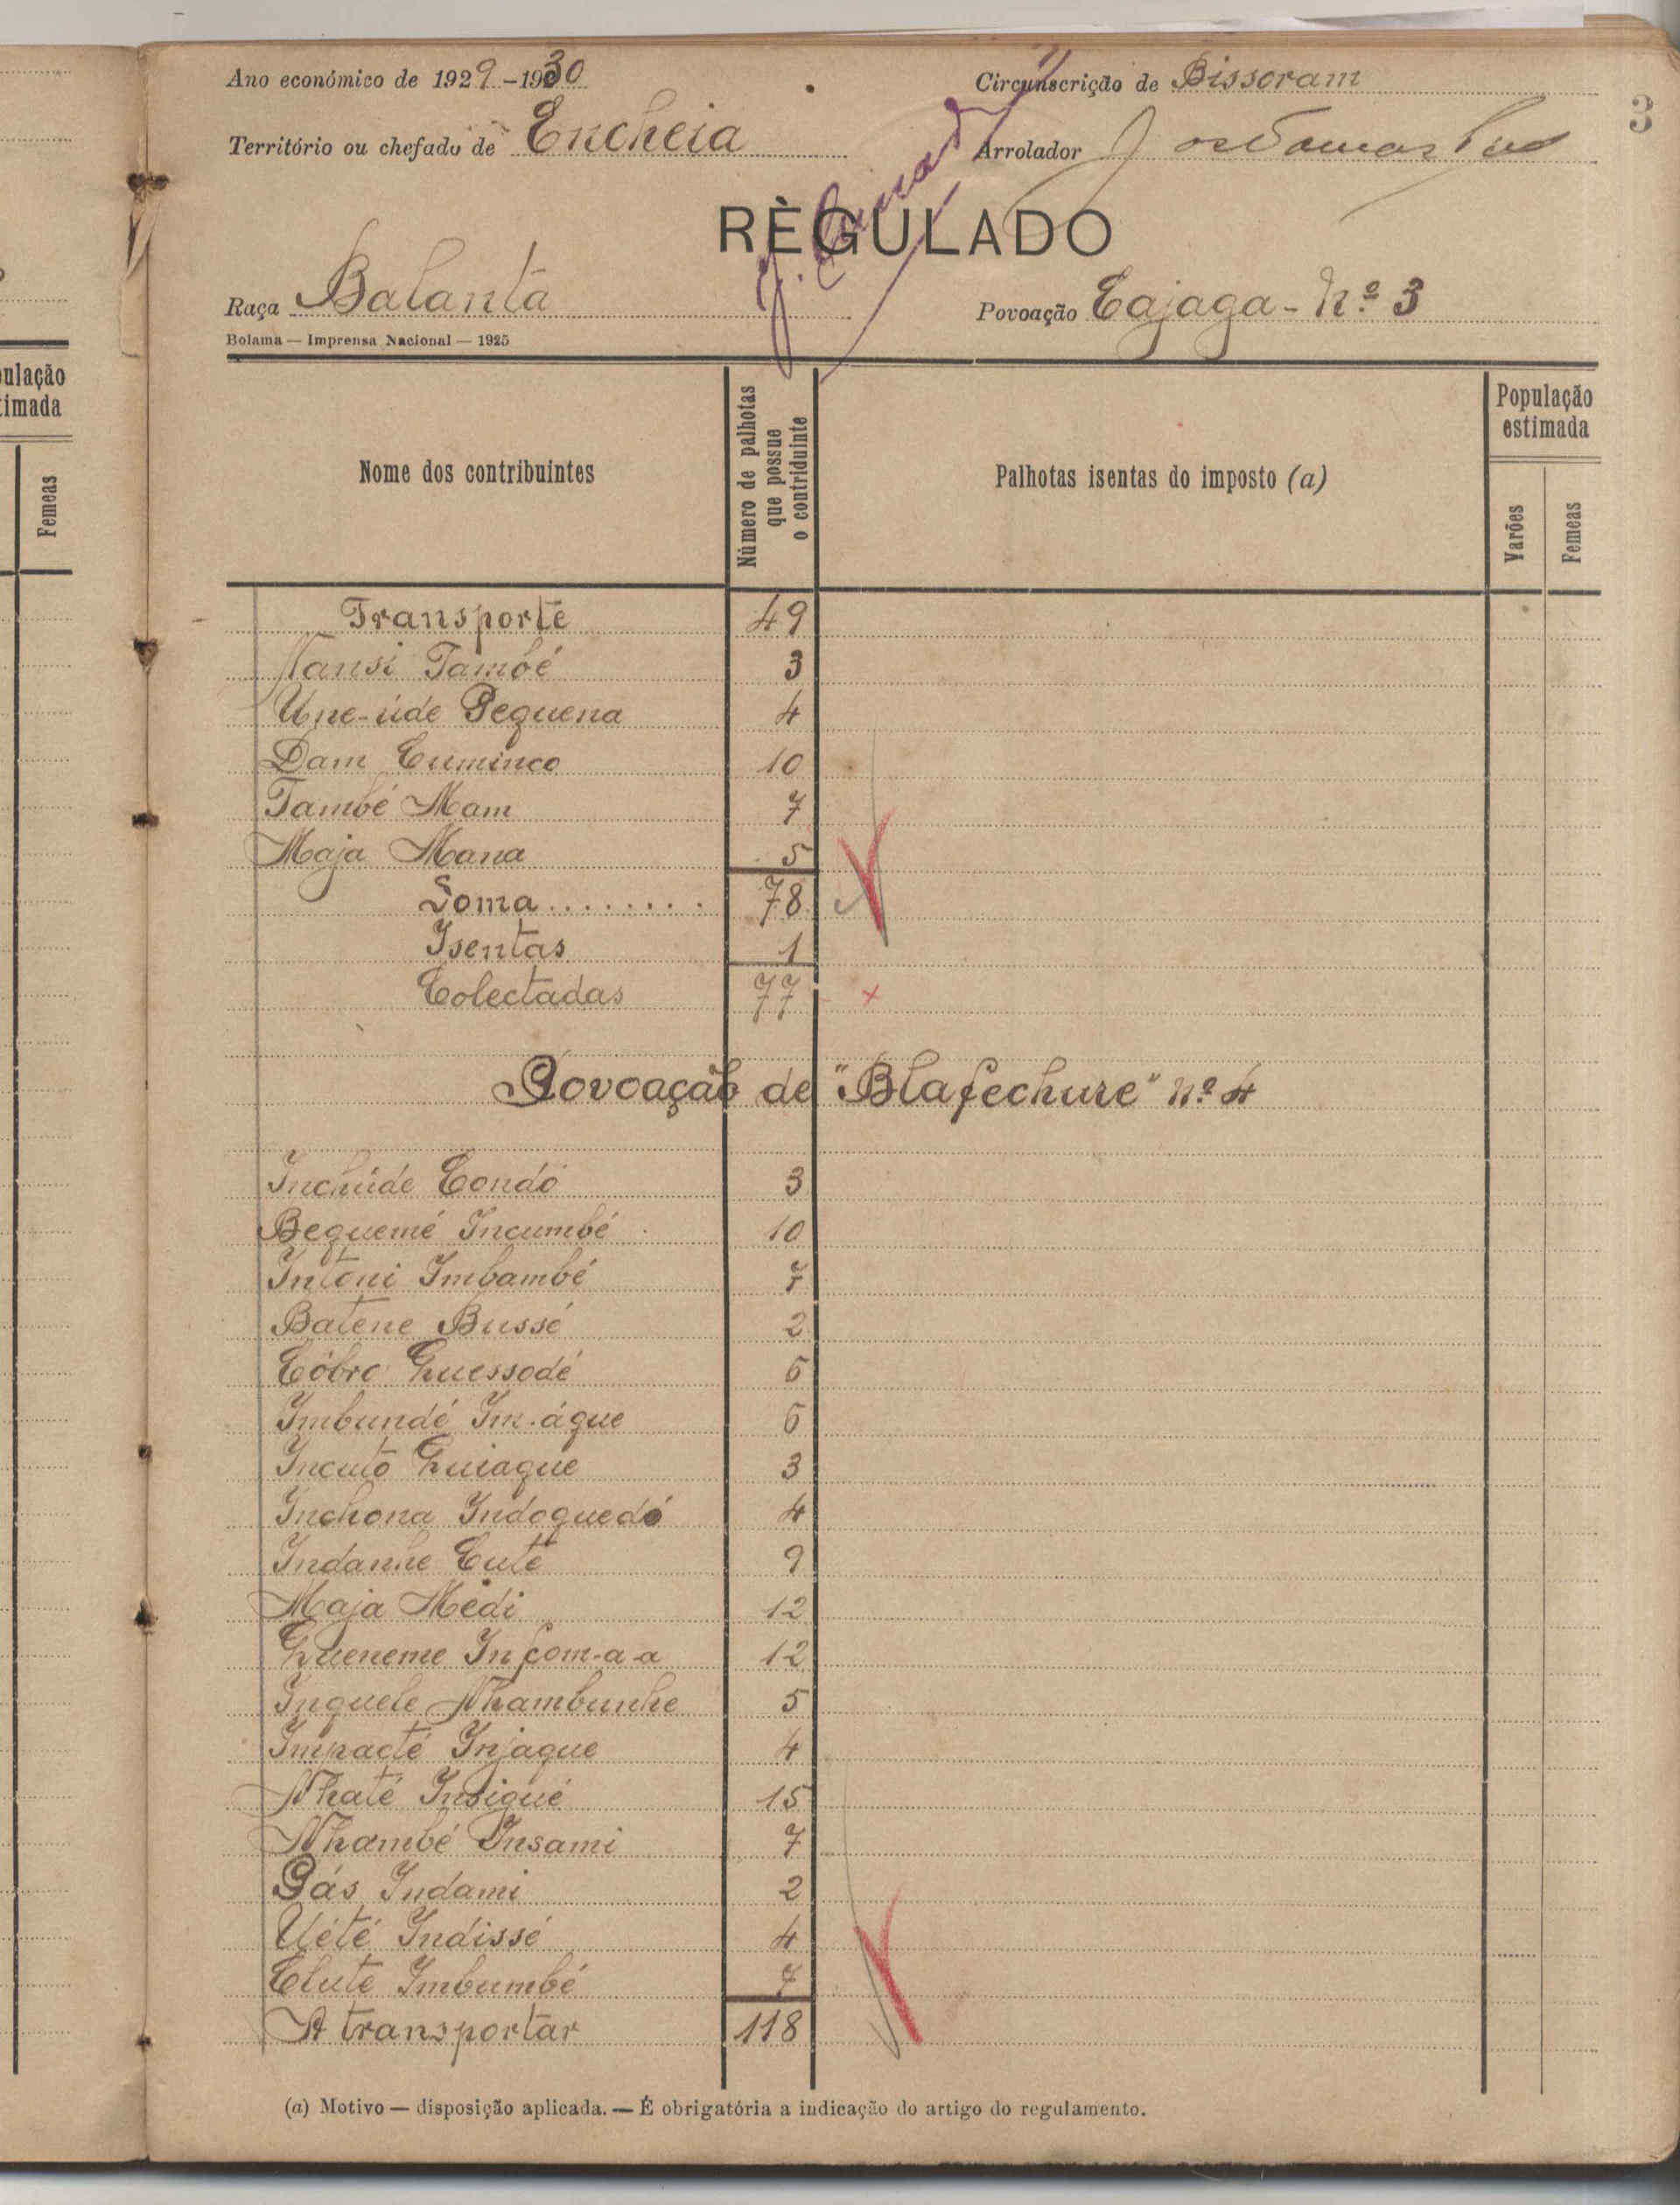 Ano económico de 1929-1930
Circunscrição de Bissoram
3
Território ou chefado de Encheia
Arrolador
RÈGULADO
Raça Balanta
Povoação Cajaga - Nº 3
Bolama — Imprensa Nacional — 1925
ulação
timada
Femeas
Nome dos contribuintes
Número de palhotas
que possue
o contriduinte
Palhotas isentas do imposto (a)
População
estimada
Varões
Femeas
Transporte 49
Nansi Também 3
Une-úde Pequena 4
Dam Cuminco 10
També Mam 7
Maja Mana 5
Soma........ 78
Isentas 1
Colectadas 77 x
Povoação de "Blafechure" nº 4
Inchúde Condó 3
Bequemé Incumbé 10
Intóni Imbambé 7
Batene Bussé 2
Cóbro Quessodé 6
Imbundé Im-águe 6
Incutó Quiaque 3
Inchona Indoguedó 4
Indanhe Cuté 9
Maja Médi 12
Queneme Infom-a-a 12
Inquele Nhambunhe 5
Impacté Injaque 4
Nhaté Insiqué 15
Nhambé Insami 7
Pás Indami 2
Uété Indissé 4
Clute Imbumbé 7
A transportar 118
(a) Motivo — disposição aplicada. — É obrigatória a indicação do artigo do regulamento.